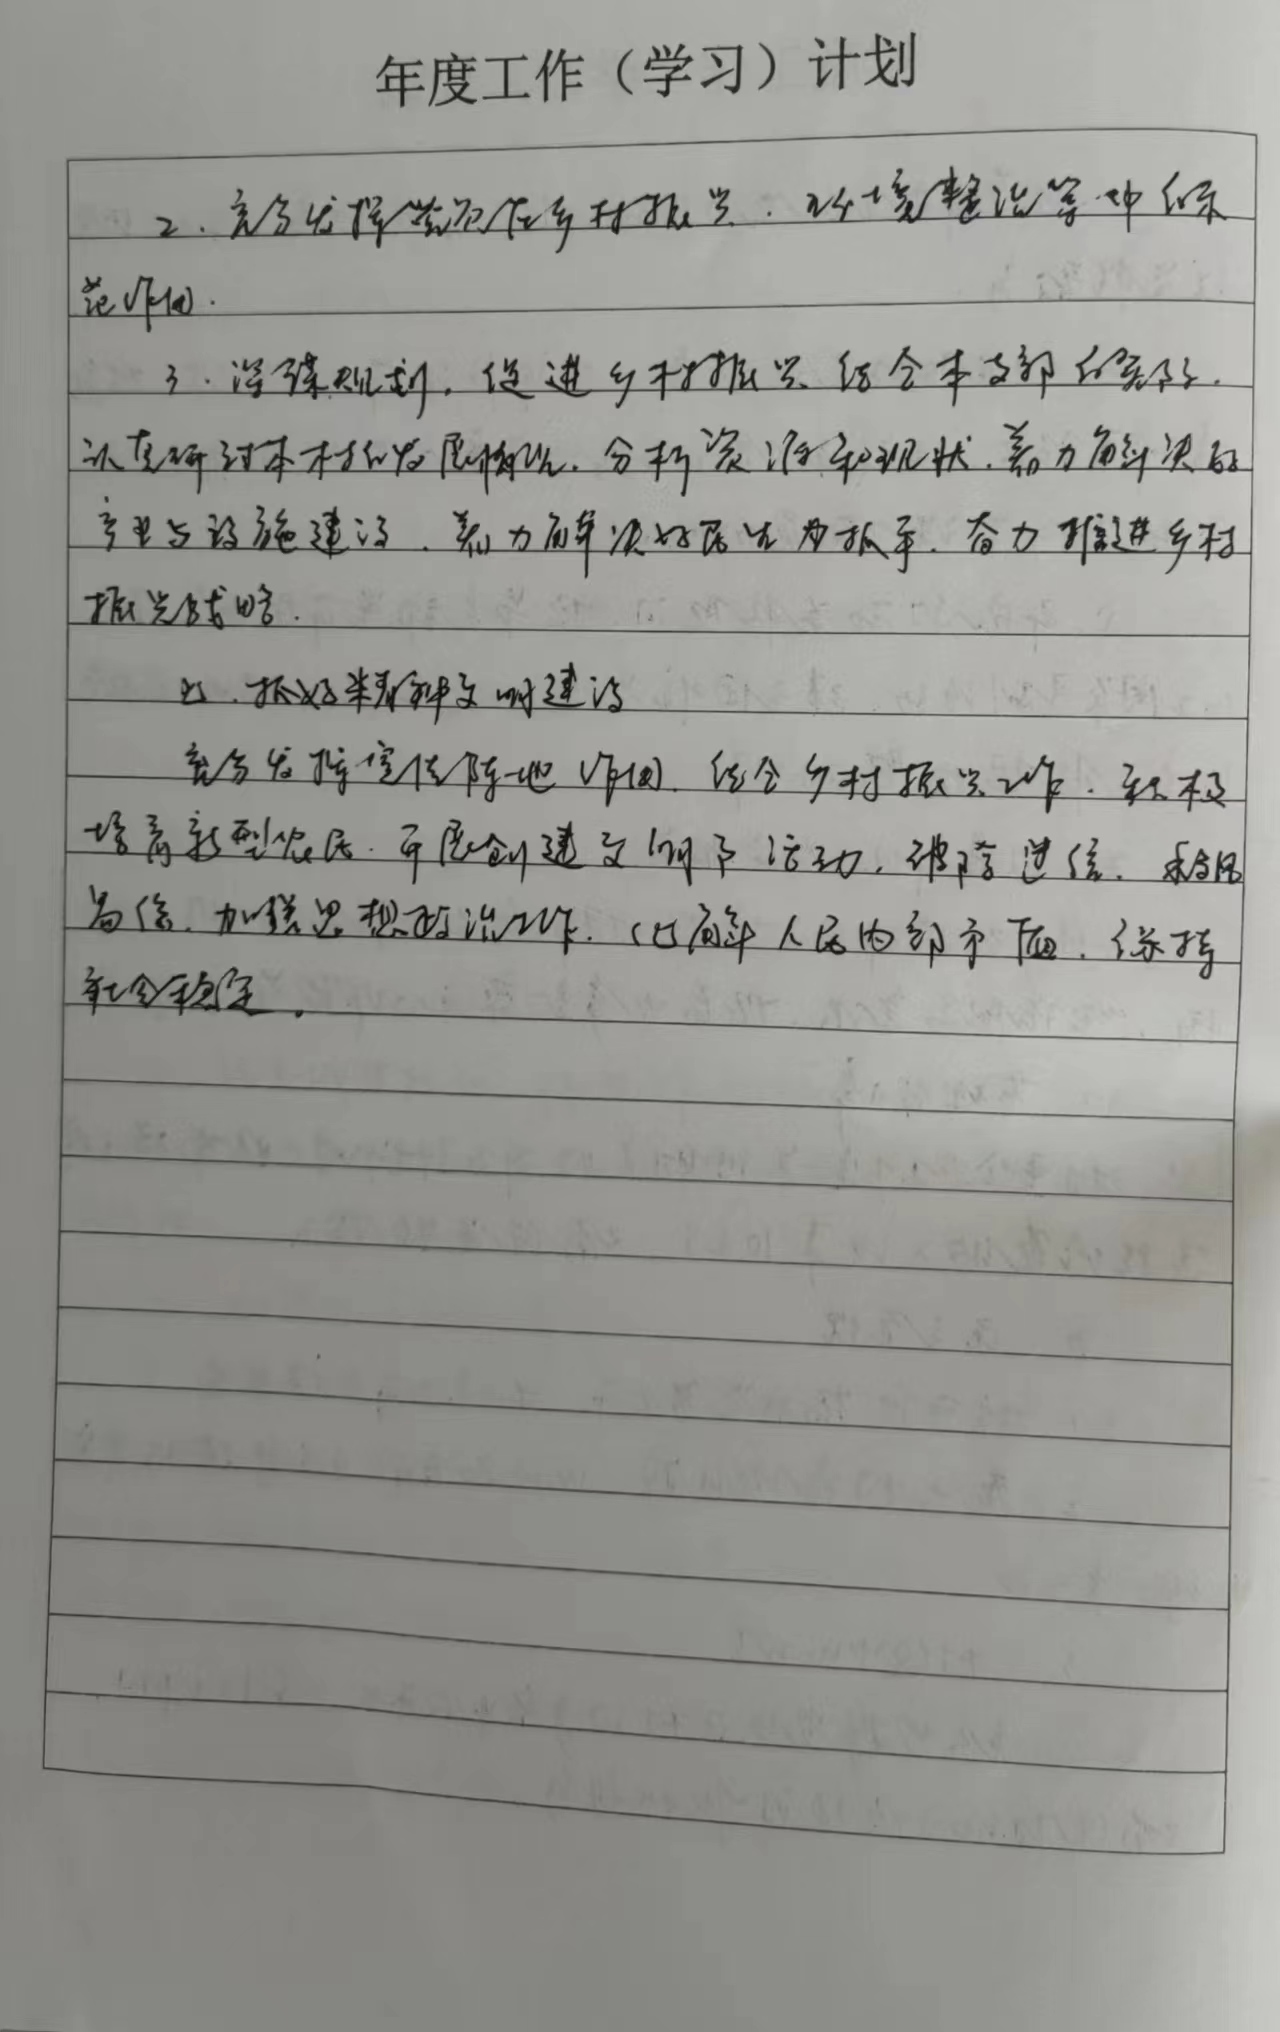 年度工作（学习）计划
2.充分发挥党员在乡村振兴.环境整治等中的示
范作用.
3.谋规划,促进乡村振兴.结合本支部的实际,
认真研讨本村的发展情况.分析资源和现状.着力解决好
产业与设施建设.着力解决好民生为抓手.奋力推进乡村
振兴战略.
四.抓好精神文明建设
充分发挥宣传阵地作用.结合乡村振兴工作.积极
培育新型农民.开展创建文明活动.破除迷信.移风
易俗.加强思想政治工作.化解人民内部矛盾.保持
社会稳定。